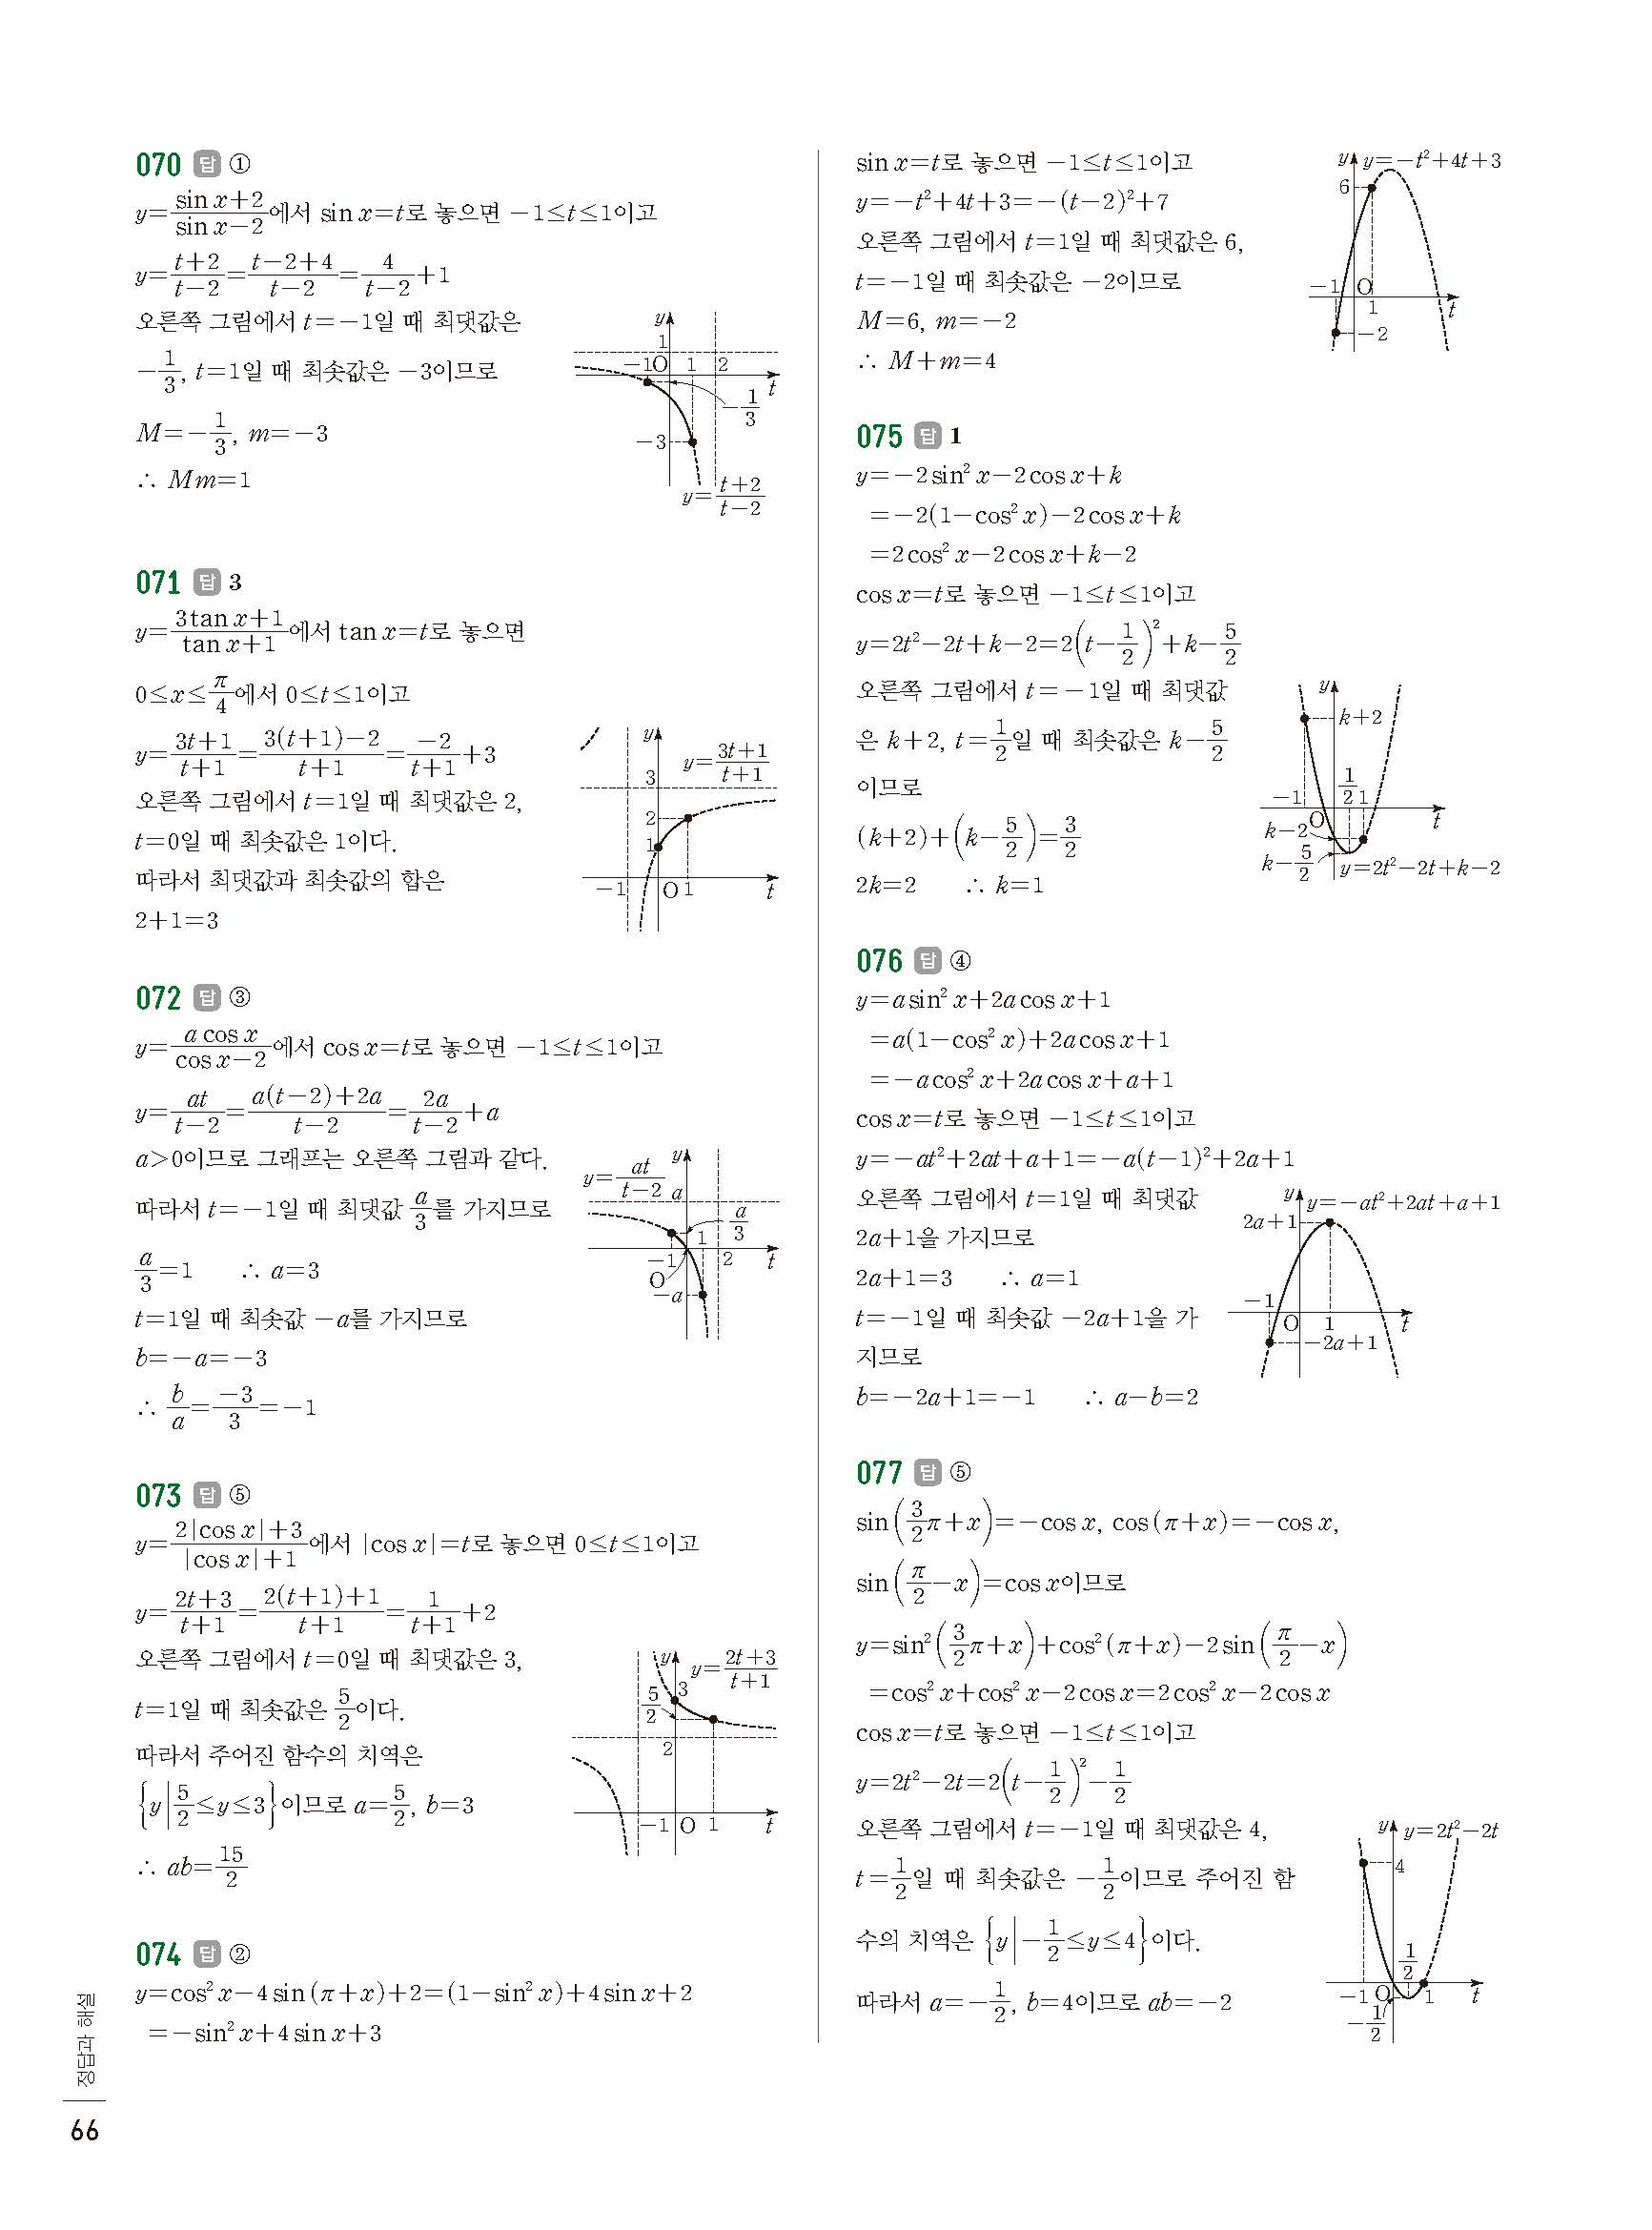 070 답 ①
y=\frac{sin x+2}{sin x-2}에서 sin x=t로 놓으면 -1≤t≤1이고
y=\frac{t+2}{t-2}=\frac{t-2+4}{t-2}=\frac{4}{t-2}+1
오른쪽 그림에서 t=-1일 때 최댓값은
-\frac{1}{3}, t=1일 때 최솟값은 -3이므로
M=-\frac{1}{3}, m=-3
∴ Mm=1
y
1
-1 O 1 2
t
-\frac{1}{3}
-3
y=\frac{t+2}{t-2}
071 답 3
y=\frac{3tan x+1}{tan x+1}에서 tan x=t로 놓으면
0≤x≤\frac{π}{4}에서 0≤t≤1이고
y=\frac{3t+1}{t+1}=\frac{3(t+1)-2}{t+1}=\frac{-2}{t+1}+3
오른쪽 그림에서 t=1일 때 최댓값은 2,
t=0일 때 최솟값은 1이다.
따라서 최댓값과 최솟값의 합은
2+1=3
y
y=\frac{3t+1}{t+1}
3
2
1
-1 O 1 t
072 답 ③
y=\frac{a cos x}{cos x-2}에서 cos x=t로 놓으면 -1≤t≤1이고
y=\frac{at}{t-2}=\frac{a(t-2)+2a}{t-2}=\frac{2a}{t-2}+a
a>0이므로 그래프는 오른쪽 그림과 같다.
따라서 t=-1일 때 최댓값 \frac{a}{3}를 가지므로
\frac{a}{3}=1 ∴ a=3
t=1일 때 최솟값 -a를 가지므로
b=-a=-3
∴ \frac{b}{a}=\frac{-3}{3}=-1
y=\frac{at}{t-2}
y
a
\frac{a}{3}
1
-1 2 t
O
-a
073 답 ⑤
y=\frac{2|cos x|+3}{|cos x|+1}에서 |cos x|=t로 놓으면 0≤t≤1이고
y=\frac{2t+3}{t+1}=\frac{2(t+1)+1}{t+1}=\frac{1}{t+1}+2
오른쪽 그림에서 t=0일 때 최댓값은 3,
t=1일 때 최솟값은 \frac{5}{2}이다.
따라서 주어진 함수의 치역은
{y|\frac{5}{2}≤y≤3}이므로 a=\frac{5}{2}, b=3
∴ ab=\frac{15}{2}
y
y=\frac{2t+3}{t+1}
3
\frac{5}{2}
2
-1 O 1 t
074 답 ②
y=cos² x-4 sin(π+x)+2=(1-sin² x)+4 sin x+2
=-sin² x+4 sin x+3
sin x=t로 놓으면 -1≤t≤1이고
y=-t²+4t+3=-(t-2)²+7
오른쪽 그림에서 t=1일 때 최댓값은 6,
t=-1일 때 최솟값은 -2이므로
M=6, m=-2
∴ M+m=4
y
y=-t²+4t+3
6
-1 O
1 t
-2
075 답 1
y=-2 sin² x-2 cos x+k
=-2(1-cos² x)-2 cos x+k
=2 cos² x-2 cos x+k-2
cos x=t로 놓으면 -1≤t≤1이고
y=2t²-2t+k-2=2(t-\frac{1}{2})²+k-\frac{5}{2}
오른쪽 그림에서 t=-1일 때 최댓값
은 k+2, t=\frac{1}{2}일 때 최솟값은 k-\frac{5}{2}
이므로
(k+2)+(k-\frac{5}{2})=\frac{3}{2}
2k=2 ∴ k=1
y
k+2
-1 \frac{1}{2} 1
O t
k-2
k-\frac{5}{2}
y=2t²-2t+k-2
076 답 ④
y=a sin² x+2a cos x+1
=a(1-cos² x)+2a cos x+1
=-a cos² x+2a cos x+a+1
cos x=t로 놓으면 -1≤t≤1이고
y=-at²+2at+a+1=-a(t-1)²+2a+1
오른쪽 그림에서 t=1일 때 최댓값
2a+1을 가지므로
2a+1=3 ∴ a=1
t=-1일 때 최솟값 -2a+1을 가
지므로
b=-2a+1=-1 ∴ a-b=2
y
y=-at²+2at+a+1
2a+1
-1
O 1 t
-2a+1
077 답 ⑤
sin(\frac{3}{2}π+x)=-cos x, cos(π+x)=-cos x,
sin(\frac{π}{2}-x)=cos x이므로
y=sin²(\frac{3}{2}π+x)+cos²(π+x)-2 sin(\frac{π}{2}-x)
=cos² x+cos² x-2 cos x=2 cos² x-2 cos x
cos x=t로 놓으면 -1≤t≤1이고
y=2t²-2t=2(t-\frac{1}{2})²-\frac{1}{2}
오른쪽 그림에서 t=-1일 때 최댓값은 4,
t=\frac{1}{2}일 때 최솟값은 -\frac{1}{2}이므로 주어진 함
수의 치역은 {y|-\frac{1}{2}≤y≤4}이다.
따라서 a=-\frac{1}{2}, b=4이므로 ab=-2
y
y=2t²-2t
4
\frac{1}{2}
-1 O 1 t
-\frac{1}{2}
정답과 해설
66